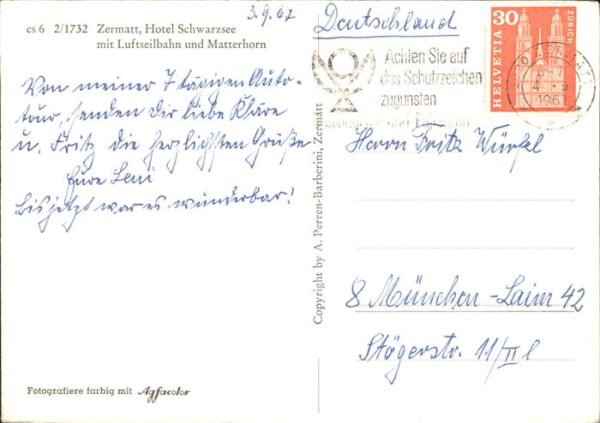 cs 6 2/1732 Zermatt, Hotel Schwarzsee
mit Luftseilbahn und Matterhorn
3.9.67
Von meiner 7 tägigen Auto-
tour, senden Dir liebe Kläre
u. Fritz die herzlichsten Grüße
Eure Leni
Bis jetzt war es wunderbar!
Fotografiere farbig mit Agfacolor
Copyright by A. Perren-Barberini, Zermatt
Deutschland
Achten Sie auf
das Schutzzeichen
zugunsten
30
HELVETIA
ZÜRICH
ZERMATT
1967
Herrn Fritz Würfel
8 München-Laim 42
Stögerstr. 11/II l